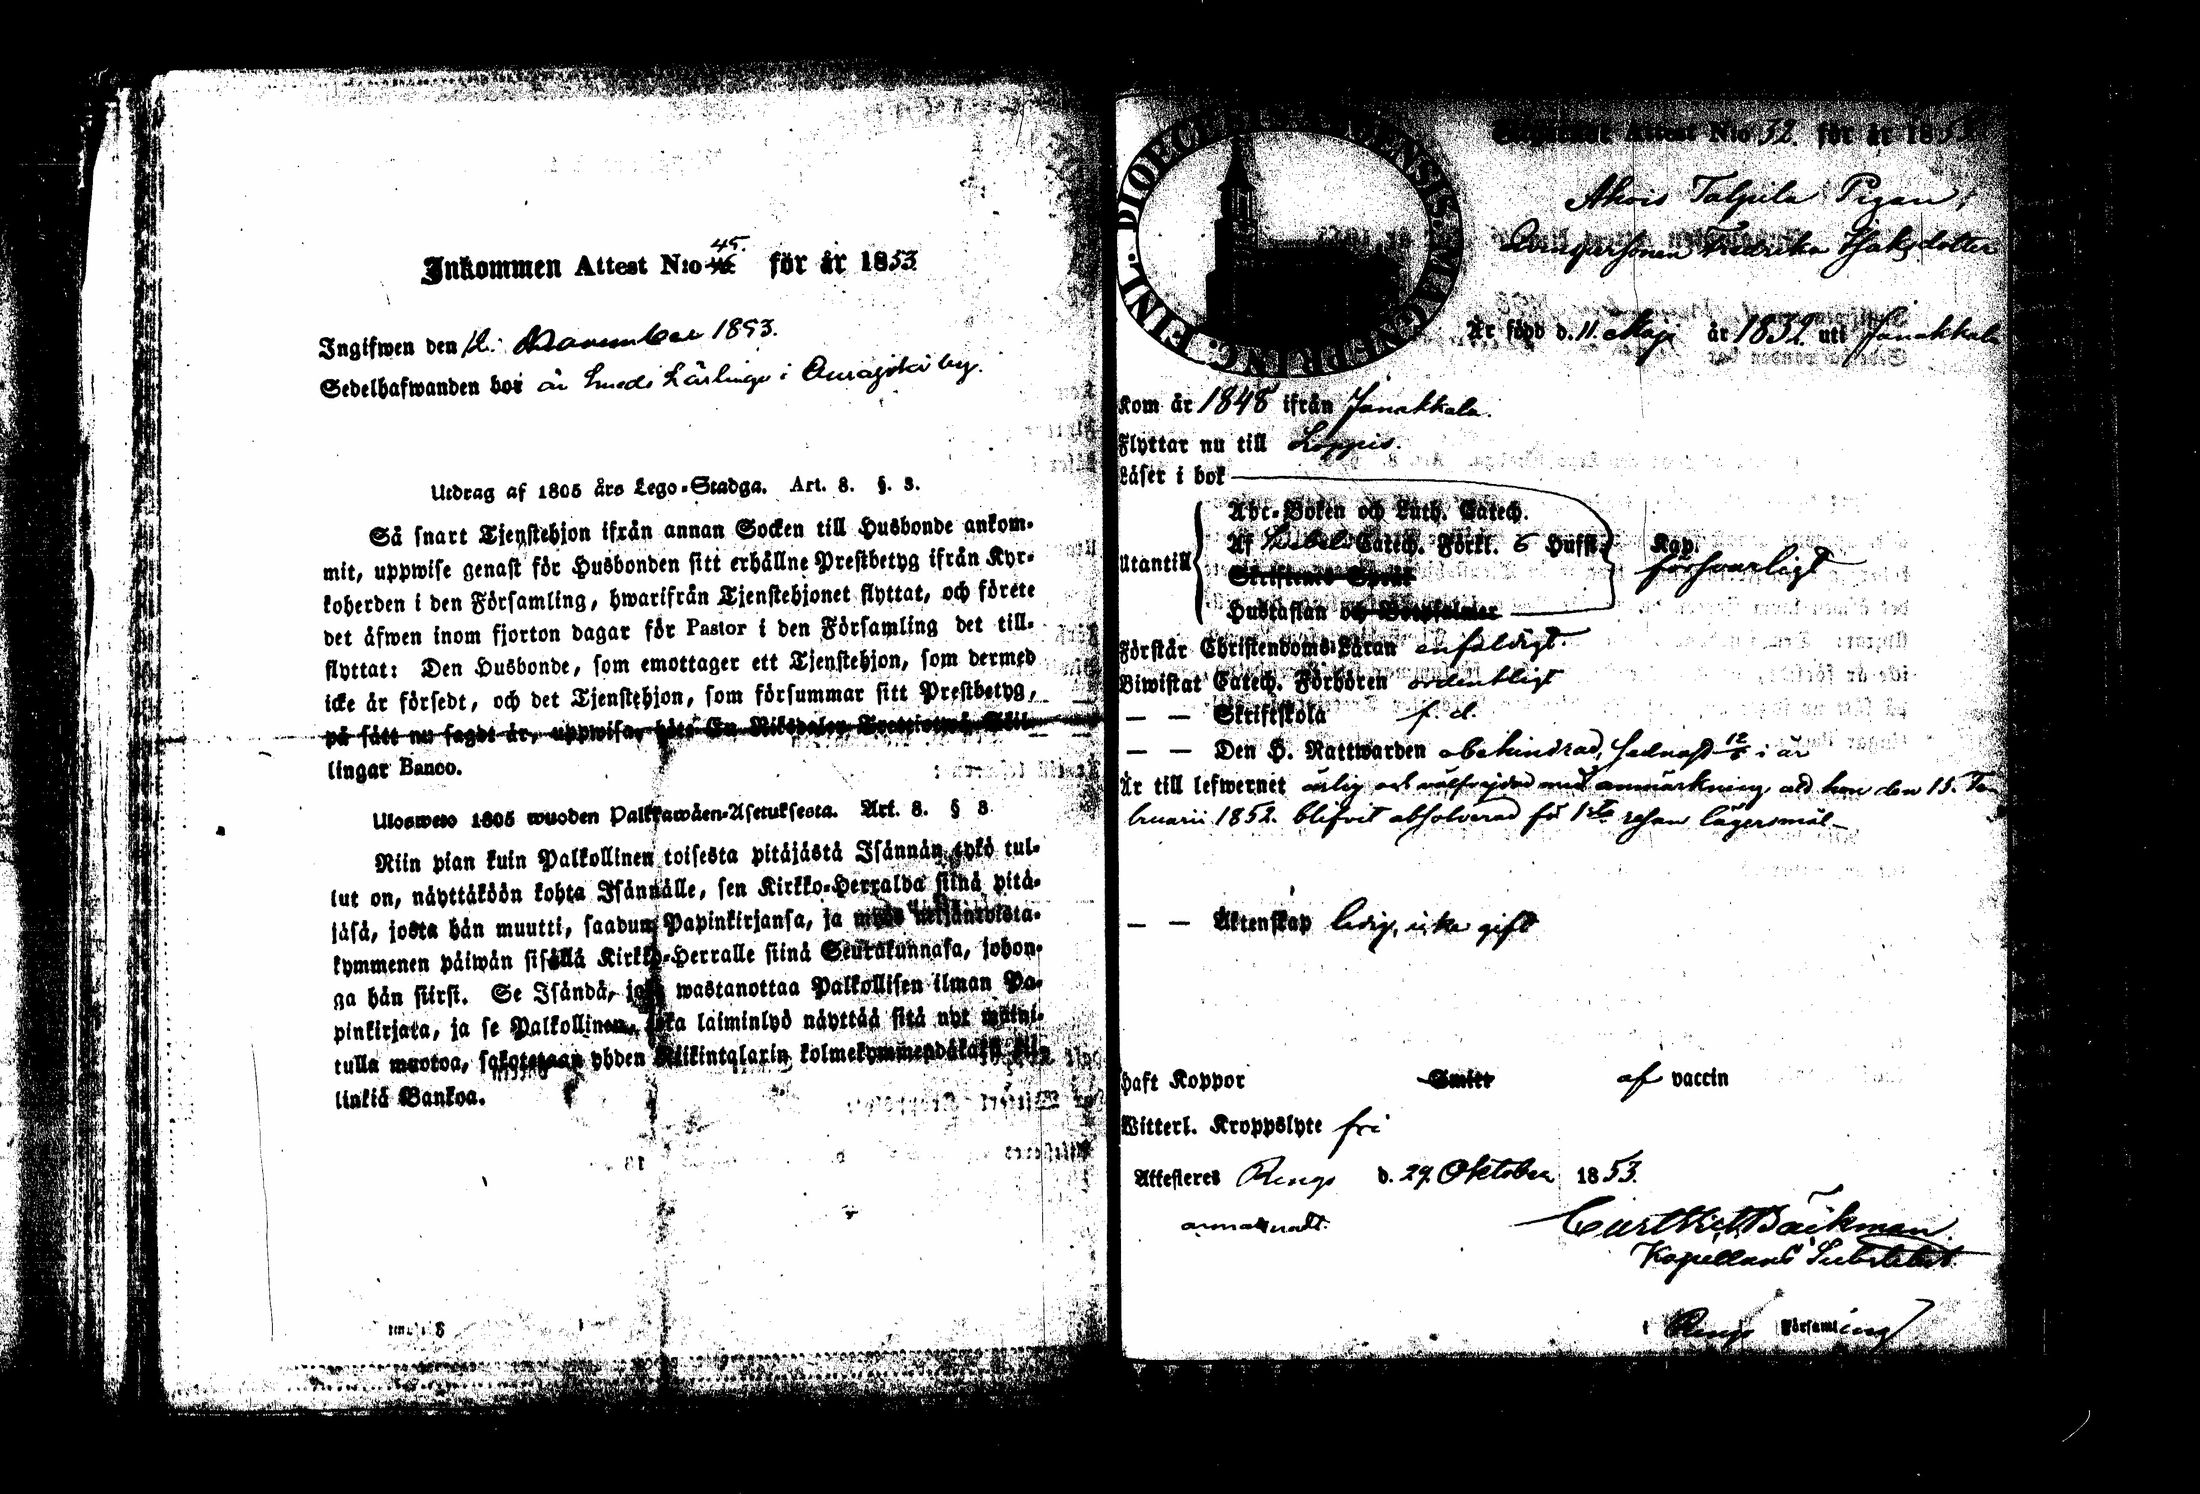 Inkommen Attest N:o 45. för år 1853
Ingifwen den 12. November 1853.
Sedelhafwanden bor är Smeds Lärlinge i by.
Utdrag af 1805 års Lego-Stadga. Art. 8. §. 3.
Så snart Tjenstehjon ifrån annan Socken till Husbonde ankom-
mit, uppwise genast för Husbonden sitt erhållne Prestbetyg ifrån Kyr-
koherden i den Församling, hwarifrån Tjenstehjonet flyttat, och förete
det äfwen inom fjorton dagar för Pastor i den Församling det till-
flyttat: Den Husbonde, som emottager ett Tjenstehjon, som dermed
icke är försedt, och det Tjenstehjon, som försummar sitt Prestbetyg,
på sätt nu sagdt är, uppwisa, böte En Riksdaler Trettiotwå Skil-
lingar Banco.
Ulosweto 1805 wuoden Palkkawäen-Asetuksesta. Art. 8. § 3
Niin pian kuin Palkollinen toisesta pitäjästä Isännän tykö tul-
lut on, näyttäköön kohta Isännälle, sen Kirkko-Herralda siinä pitä-
jäsä, josta hän muutti, saadun Papinkirjansa, ja myös neljäntoista-
kymmenen päiwän sisällä Kirkko-Herralle siinä Seurakunnasa, johon-
ga hän siirsi. Se Isändä, joka wastanottaa Palkollisen ilman Pa-
pinkirjata, ja se Palkollinen, joka laiminlyö näyttää sitä nyt maini-
tulla muotoa, sakotetaan yhden Riikintalarin kolmekymmendäkaksi kil-
linkiä Bankoa.
FINL. DIOECESIS ABOENSIS. MAGNEPRINC.
Attest N:o 32. för år 1853
Ahois Talpila Pigan,
Qvinspersonen Fredrika Isaksdotter
Är född d. 11. Maji år 1832. uti Janakkala
Kom år 1848 ifrån Janakkala.
Flyttar nu till Loppis.
Läser i bok
Utantill
Abc-Boken och Luth. Catech.
Af Catech. Förkl. 6 Hufst. Kap.
försvarligt
Skriftenes Språk
Hustaflan och Botpsalmer
Förstår Christendoms Läran enfaldigt.
Biwistat Catech. Förhören ordentligt
— — Skriftskola f. d.
— — Den H. Nattwarden obehindrad, sednast 12/6 i år
Är till lefwernet ärlig och välfrejdad med anmärkning att hon den 15. Fe-
bruarii 1852. blifvit absolverad för 1sta resan lägersmål—
— — Äktenskap ledig, icke gift
Haft Koppor Smitt af vaccin
Witterl. Kroppslyte fri
Attesteres Rengo d. 29. Oktober 1853.
Curt Vict. Bäckman.
Kapellans Substitut
i Rengo Församling